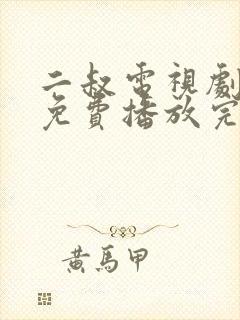 二叔電視劇
免費播放完
黃馬甲